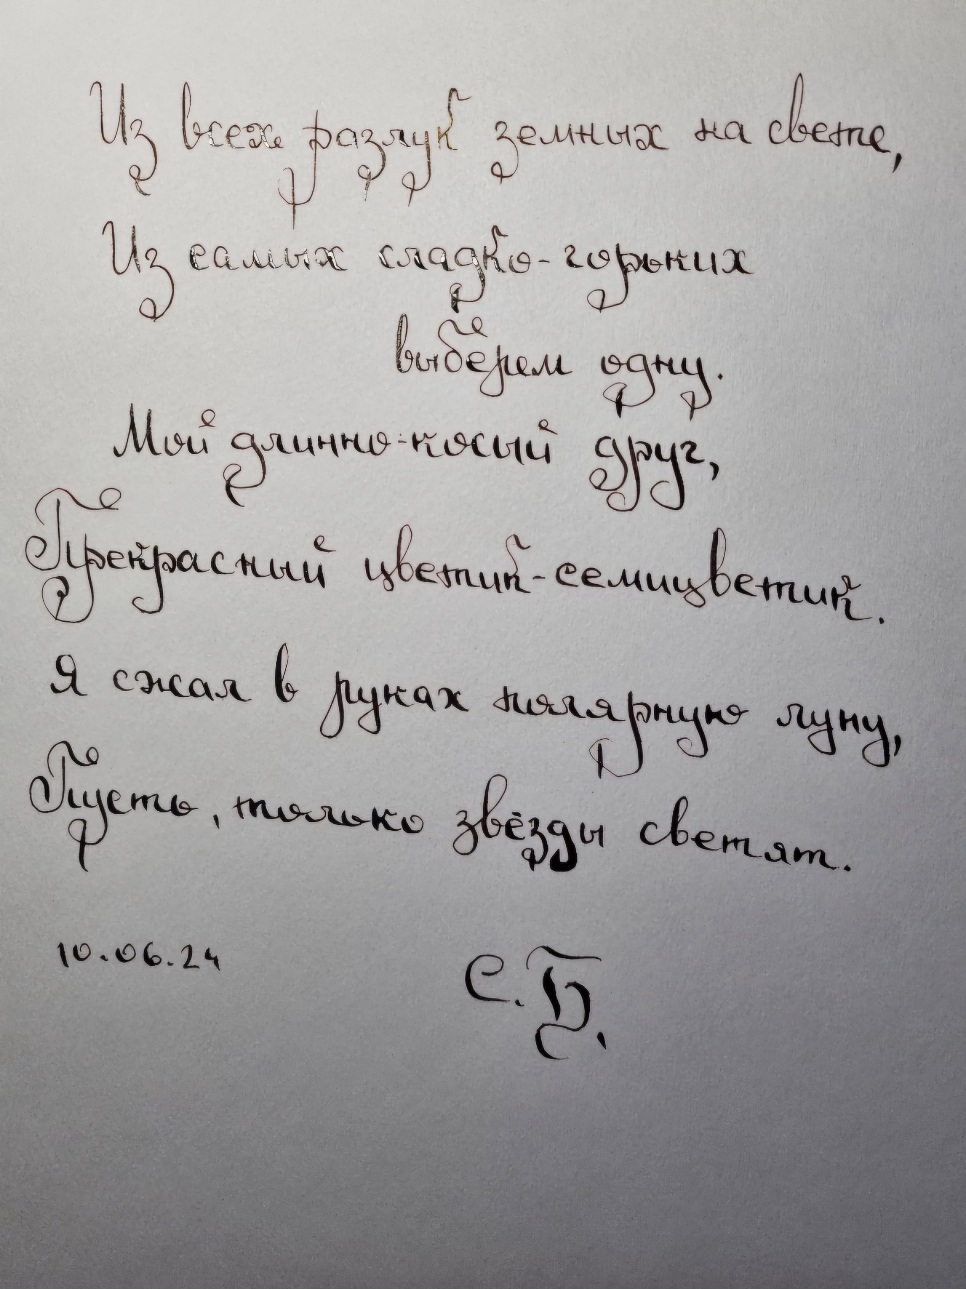 Из всех разлук земных на свете,
Из самых сладко-горьких
выберем одну.
Мой длинно-косый друг,
Прекрасный цветик-семицветик.
Я сжал в руках полярную луну,
Пусть, только звёзды светят.
10.06.24
С.Б.